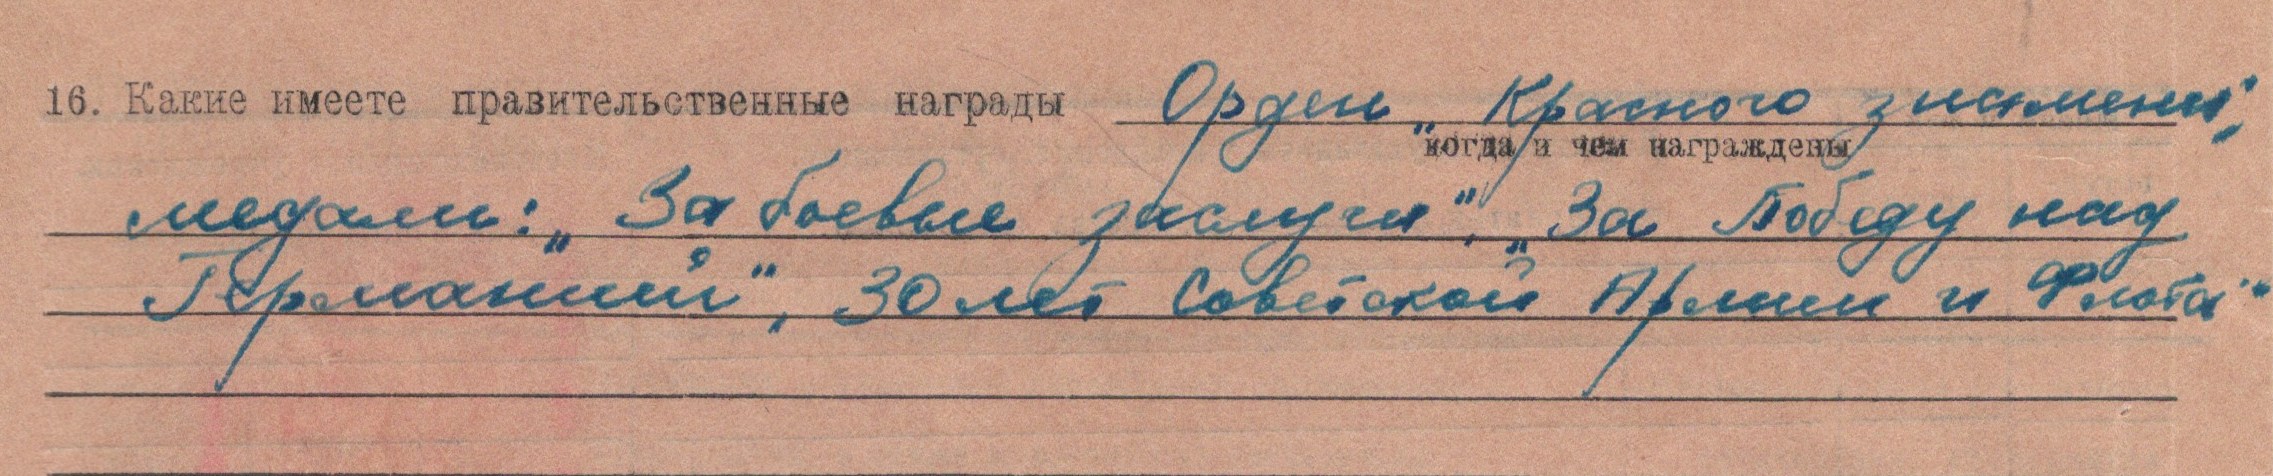 16. Какие имеете правительственные награды Орден „Красного знамени“,
когда и чем награждены
медали: „За боевые заслуги“, „За Победу над
Германией“, 30 лет Советской Армии и Флота“